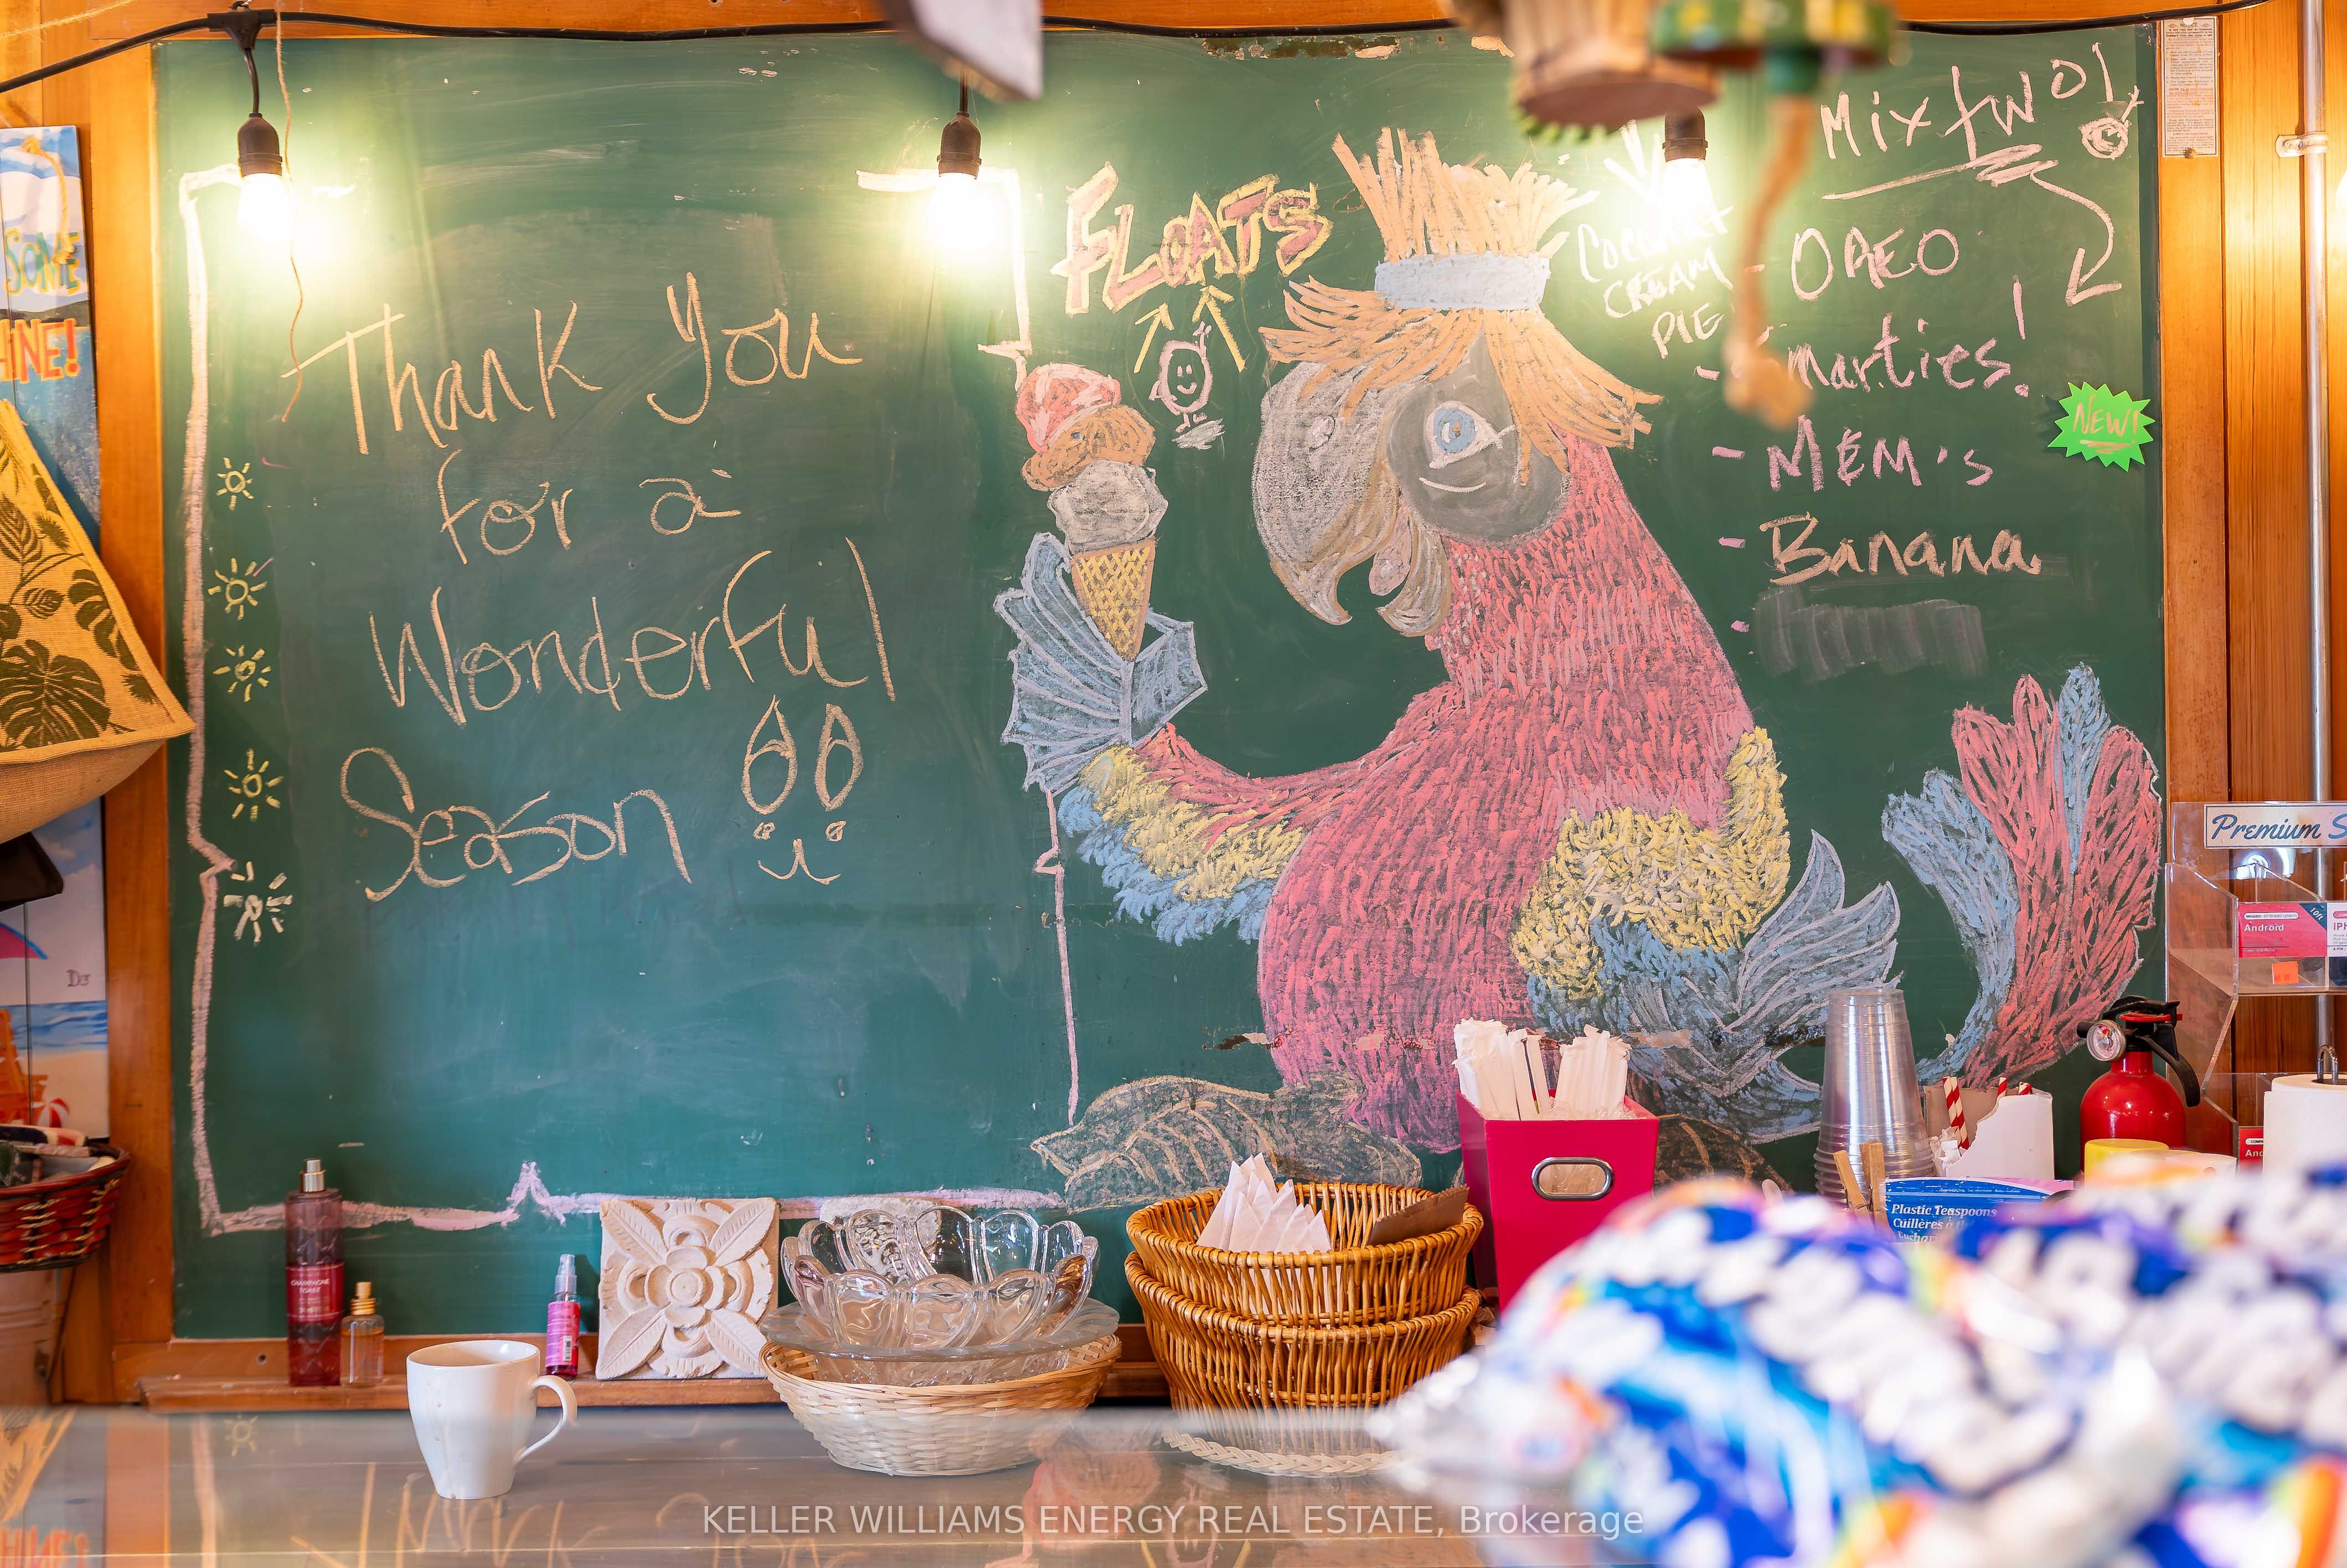 Thank You
for a
Wonderful
Season
FLOATS
Coconut
CREAM
PIE
Mix two!
- OREO
- Smarties!
- M&M's
- Banana
NEW!
SOME
HINE!
Premium S
Android
IPH
CHAMPAGNE
TOAST
Plastic Teaspoons
Cuillères à
KELLER WILLIAMS ENERGY REAL ESTATE, Brokerage